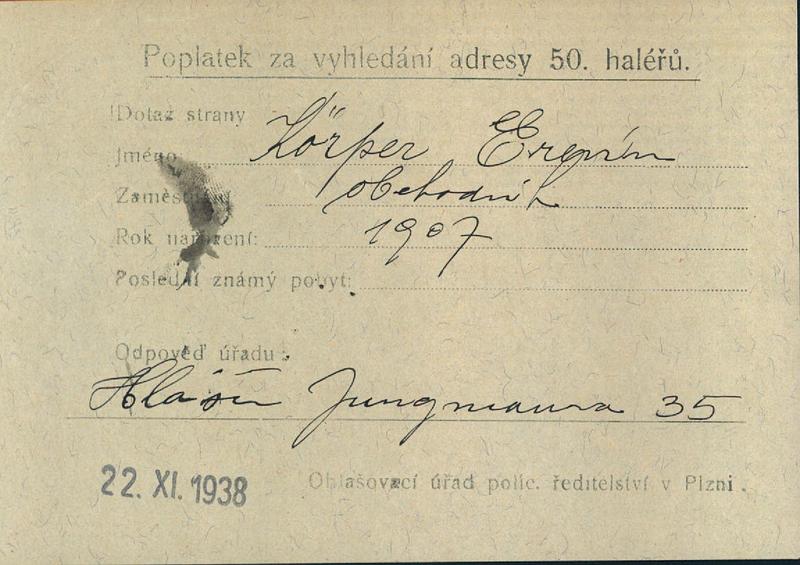 Poplatek za vyhledání adresy 50. haléřů.
Dotaz strany
Jméno Körper Ervín
Zaměstnání obchodník
Rok narození: 1907
Poslední známý pobyt:
Odpověď úřadu:
Hlášen Jungmanova 35
22. XI. 1938 Ohlašovací úřad polic. ředitelství v Plzni.